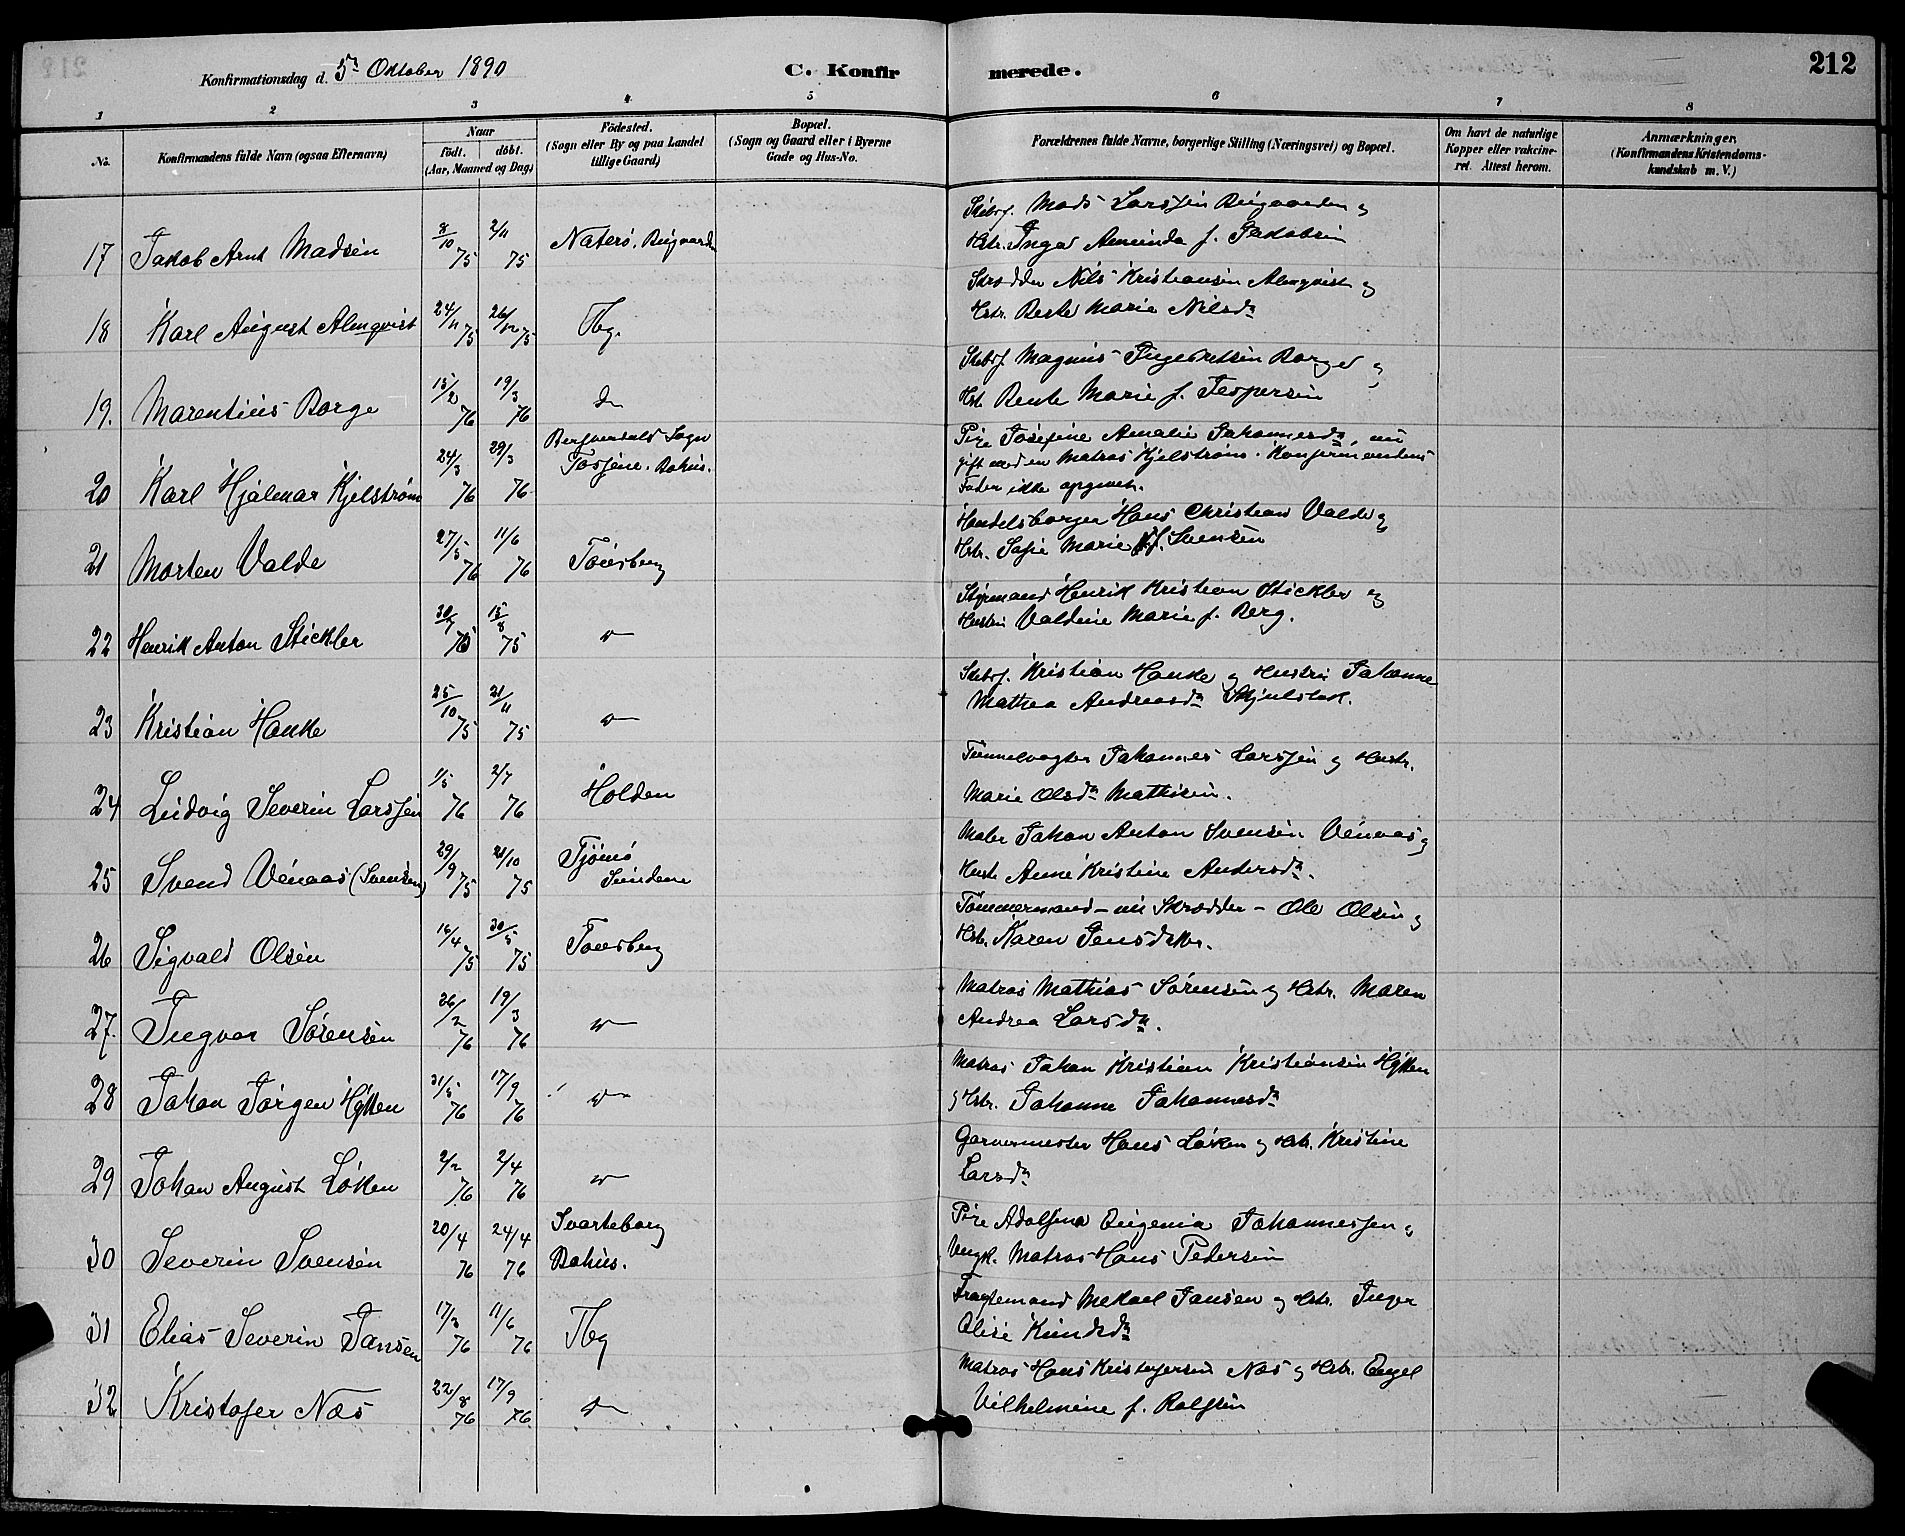 212
Konfirmationsdag d. 5te Oktober 1890
C. Konfirmerede.
1 2 3 4 5 6 7 8
No.
Konfirmandens fulde Navn (ogsaa Efternavn)
Naar
født. døbt.
(Aar, Maaned og Dag)
Födested.
(Sogn eller By og paa Landet
tillige Gaard)
Bopæl.
(Sogn og Gaard eller i Byerne
Gade og Hus-No.
Forældrenes fulde Navne, borgerlige Stilling (Næringsvei) og Bopæl.
Om havt de naturlige
Kopper eller vakcine-
ret. Attest herom.
Anmærkninger,
(Konfirmandens Kristendoms-
kundskab m. V.)
17 Jakob Arnt Madsen 8/10 75 2/11 75 Nøterø.
Mads Larssen
Hstr. Inger Aminda f. Jakobsen
18 Karl August Almqvist 24/11 75 26/12 75 Tbg.
Skrædder Nils Kristiansen Almqvist og
Hstr. Berte Marie Nilsdr
19. Marentius Borge 15/2 76 19/3 76 do
Skibsf. Magnus Ingebretsen Borge og
Hst. Bente Marie f. Jespersen
20 Karl Hjalmar Kjelstrøm 24/3 76 29/3 76 Sogn
Bohus.
Pige Josefine Amalie Johannesdr, nu
gift med en Matros Kjelstrøm. Konfirmandens
Fader ikke opgivet.
21 Morten Valde 27/5 76 11/6 76 Tønsberg
Handelsborger Hans Christian Valde og
Hstr. Sofie Marie f. Svensen
22 Henrik Anton Stickler 30/7 75 15/8 75 "
Styrmand Henrik Kristian Stickler og
Hustru Valdine Marie f. Berg.
23 Kristian Hanke 25/10 75 21/11 75 "
Skibsf. Kristian Hanke og Hustru Johanne
Mathea Andreasdr
24 Ludvig Severin Larssen 1/5 76 2/7 76 Holden
Tunnelvogter Johannes Larssen og Hustr.
Marie Olsdr Mathisen.
25 Svend Venaas (Svensen) 29/9 75 21/10 75 Tjømø
Sundene
Maler Johan Anton Svensen Venaas og
Hust Anne Kristine Andersdr.
26 Sigvald Olsen 16/4 75 30/5 75 Tønsberg
Tømmermand - nu Skrædder - Ole Olsen og
Hstr. Karen Jensdatter.
27. Ingvar Sørensen 26/2 76 19/3 76 "
Matros Mathias Sørensen og Hstr. Maren
Andrea Larsdr.
28 Johan Jørgen Hytten 31/5 76 17/9 76 "
Matros Johan Kristian Kristiansen Hytten
og Hstr. Johanne Johannesdr
29 Johan August Løken 2/2 76 2/4 76 "
Garvermester Hans Løken og Hstr. Kristine
Larsdr
30 Severin Svensen 20/4 76 24/4 76 Svarteborg
Bohus.
Pige Adolfina Eugenia Johannessen og
Ungk. Matros Hans Pedersen
31 Elias Severin Jansen 17/3 76 11/6 76 Tbg
Fragtemand Mekael Jansen og Hstr. Inger
Olise Knudsdr
32 Kristofer Næs 22/8 76 17/9 76 do
Matros Hans Kristofersen Næs og Hstr. Engel
Vilhelmine f. Rolfsen